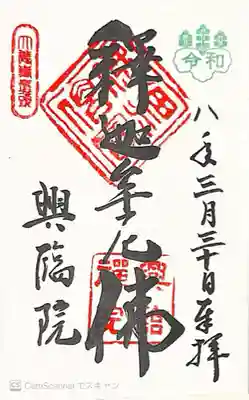 令和
八年三月三十日奉拝
釋迦牟尼佛
興臨院
CamScanner でスキャン